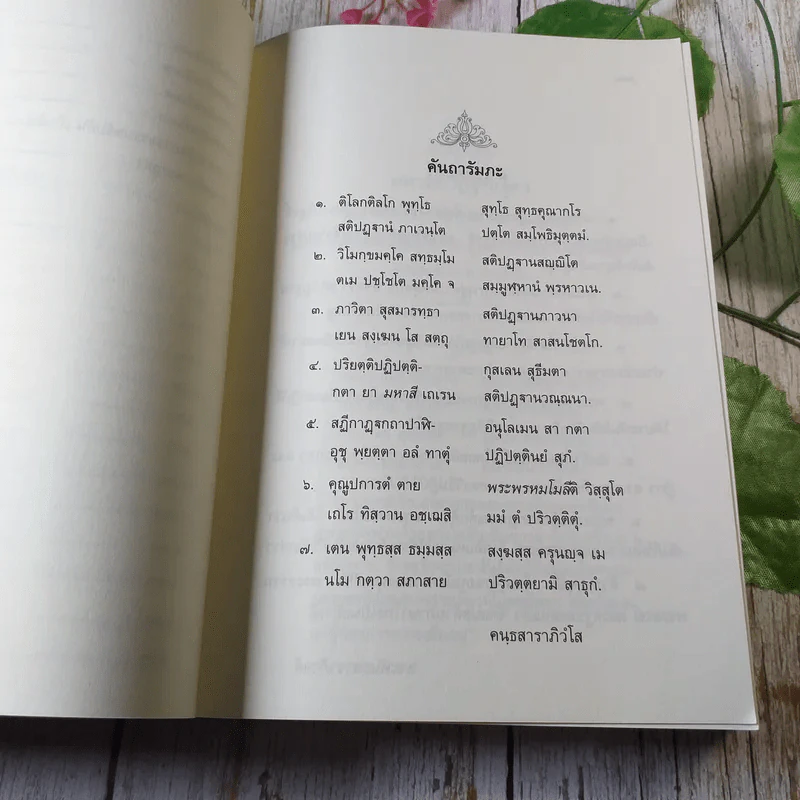 คันถารัมภะ
๑. ติโลกติลโก พุทฺโธ สุทฺโธ สุทฺธคุณากโร
สติปฏฺฐานํ ภาเวนฺโต ปตฺโต สมฺโพธิมุตฺตมํ.
๒. วิโมกฺขมคฺโค สทฺธมฺโม สติปฏฺฐานสญฺญิโต
ตเม ปชฺโชโต มคฺโค จ สมฺมูฬฺหานํ พฺรหาวเน.
๓. ภาวิตา สุสมารทฺธา สติปฏฺฐานภาวนา
เยน สงฺเฆน โส สตฺถุ ทายาโท สาสนโชตโก.
๔. ปริยตฺติปฏิปตฺติ- กุสเลน สุธีมตา
กตา ยา มหาสี เถเรน สติปฏฺฐานวณฺณนา.
๕. สฏีกาฏฺฐกถาปาฬิ- อนุโลเมน สา กตา
อุชุ พฺยตฺตา อลํ ทาตุํ ปฏิปตฺตินยํ สุภํ.
๖. คุณูปการตํ ตาย พระพรหมโมลีติ วิสฺสุโต
เถโร ทิสฺวาน อชฺเฌสิ มมํ ตํ ปริวตฺติตุํ.
๗. เตน พุทฺธสฺส ธมฺมสฺส สงฺฆสฺส ครุนญฺจ เม
นโม กตฺวา สภาสาย ปริวตฺตยามิ สาธุกํ.
คนฺธสาราภิวํโส